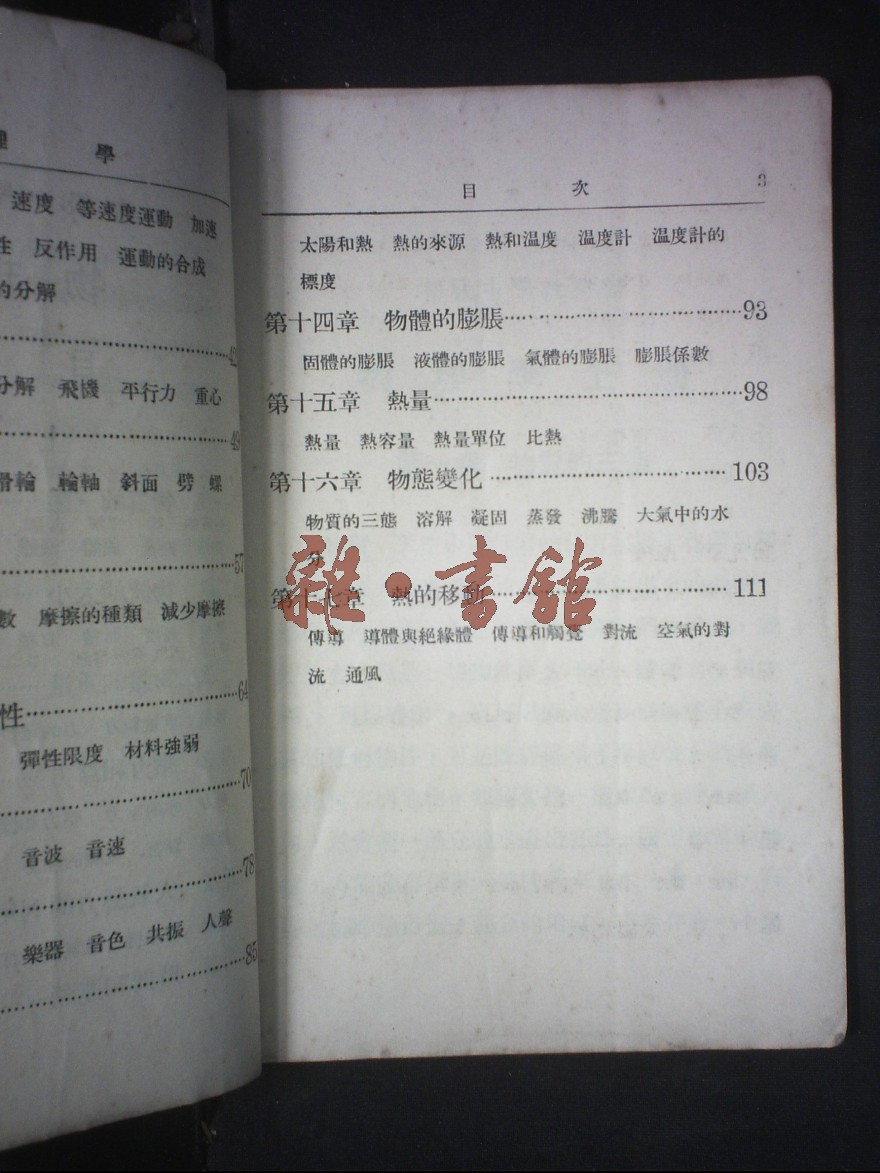 學
速度　等速度運動　加速
性　反作用　運動的合成
的分解
……………………42
分解　飛機　平行力　重心
……………………49
滑輪　輪軸　斜面　劈　螺
……………………57
數　摩擦的種類　減少摩擦
性……………………64
彈性限度　材料強弱
……………………70
音波　音速
……………………78
樂器　音色　共振　人聲
……………………85
目　次　3
太陽和熱　熱的來源　熱和温度　温度計　温度計的
標度
第十四章　物體的膨脹……………………93
固體的膨脹　液體的膨脹　氣體的膨脹　膨脹係數
第十五章　熱量……………………98
熱量　熱容量　熱量單位　比熱
第十六章　物態變化……………………103
物質的三態　溶解　凝固　蒸發　沸騰　大氣中的水
分
第十七章　熱的移動……………………111
傳導　導體與絕緣體　傳導和觸覺　對流　空氣的對
流　通風
雜·書館